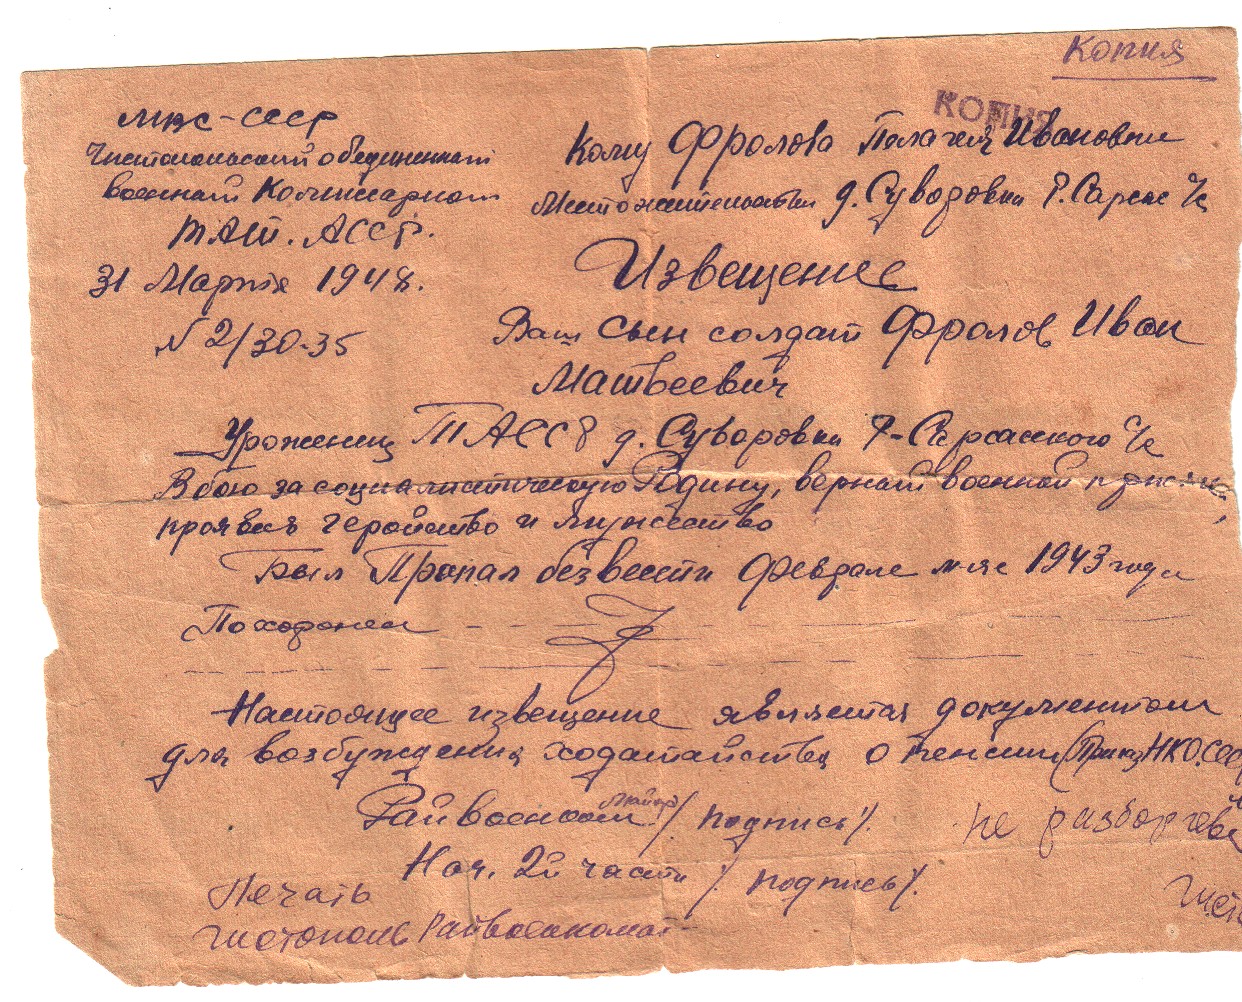 Копия
КОПИЯ
МВС-СССР
Чистопольский объединенный
военный Комиссариат
ТАТ. АССР.
31 Марта 1948.
№ 2/30-35
Кому Фролова Пелагея Ивановне
Местожительства д. Суворовка Р. Сарсас Ч/к
Извещение
Ваш Сын солдат Фролов Иван
Матвеевич
Уроженец ТАССР д. Суворовка Р-Сарсасского Ч/к
В бою за социалистическую Родину, верный военной присяге,
проявив геройство и мужество
Был Пропал без вести Феврале м-це 1943 года
Похоронен
Настоящее извещение является документом
для возбуждения ходатайства о пенсии (Приказ НКО.СССР
Райвоенком майор /подпись/. не разборчева
Нач. 2й части /подпись/.
Печать
Чистополь Райвоенкомат
Чисто